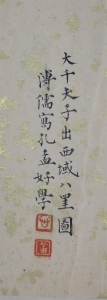 大千夫子出西域八里圖
溥儒寫孔孟好學